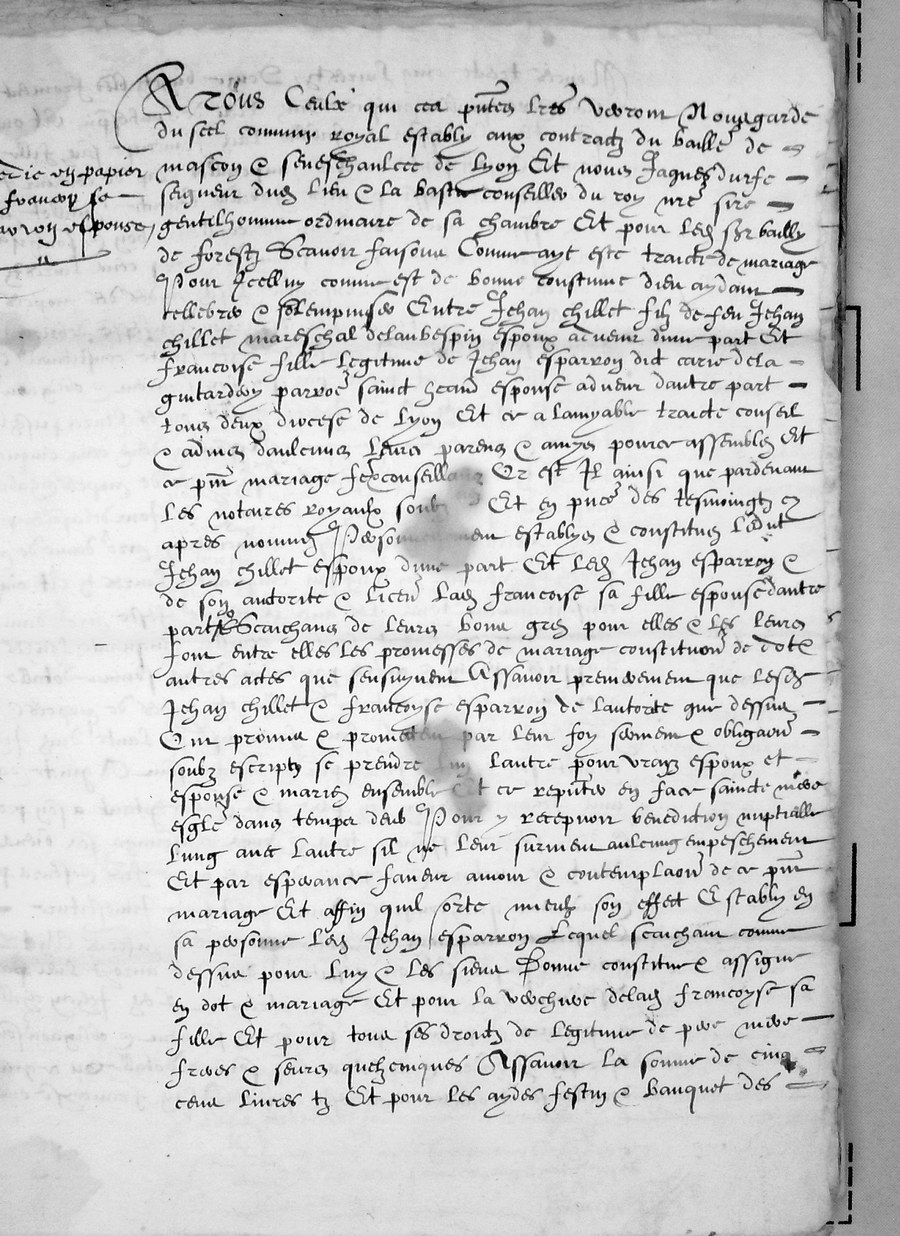 A Tous Ceulx qui ces pntes lres verront Nous garde
du seel commung royal estably aux contractz du bailleage de
mascon & seneschaulcee de Lyon Et nous Jaques durfe
seigneur dud lieu & la bastie conseiller du roy nre sire
gentilhomme ordinaire de sa chambre Et pour led sgr bailly
de forestz Scavoir faisons Comme ayt este traicte de mariage
Pour Icelluy comme est de bonne coustume dieu aydant
cellebrer & solempniser Entre Jehan chillet filz de feu Jehan
chillet mareschal de laubespin espoux advenir dune part Et
francoise fille legitime de Jehan esparron dict carie de la
guitardon parroe sainct heand espouse advenir dautre part
tous deux diocese de Lyon Et ce a lamyable traicte conseil
& advis daulcuns leurs parens & amys pour ce assembles Et
ce pnt mariage Or est Il ainsi que pardevant
les notaires royaulx soubz Et en pnce des tesmoingtz cy
apres nommes Personnellement establys & constitues led
Jehan chillet espoux dune part Et led Jehan esparron &
de son autorite & licen lad francoise sa fille espouse dautre
part Scaichans de leurs bons gres pour elles & les leurs
font entre elles les promesses de mariage constitution de dot &
autres actes que sensuyvent Assavoir premierement que lesd
Jehan chillet & francoyse esparron de lautorite que dessus
Ont promis & promettent par leur foy serment & obligaon
soubz escriptz se prendre lung lautre pour vrays espoux et
espouse & maries ensemble Et ce en face saincte mere
esglise dans temps deub Pour y recepvoir benediction nuptialle
lung avec lautre sil ne leur survient aulcung empeschement
Et par esperance faveur amour & contemplaon de ce pnt
mariage Et affin quil sorte mieulx son effect Estably en
sa personne led Jehan esparron Lequel scaichant comme
dessus pour luy & les siens Donne constitue & assigne
en dot & mariage Et pour la verchiere de lad francoyse sa
fille Et pour tous ses droictz de legitime de pere mere
freres & seurs quelzconques Assavoir la somme de cinq
cens livres tz Et pour les aydes festin & banquet des
en papier
francoyse
ung espouse